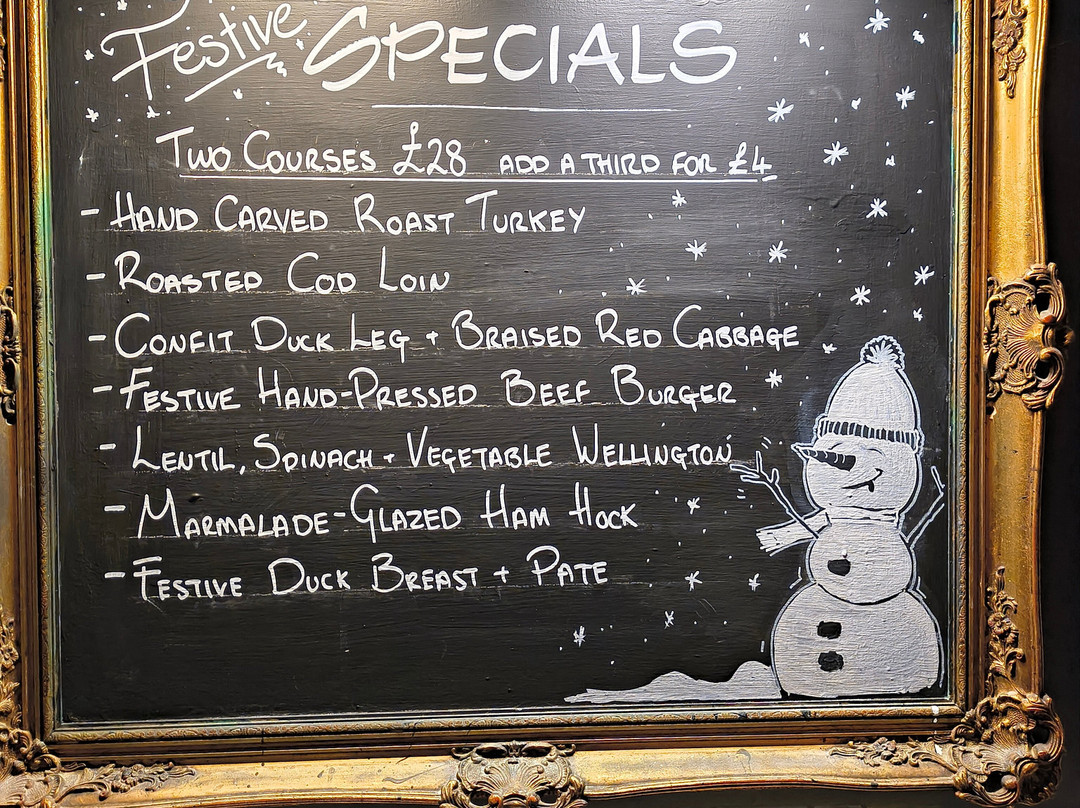 Festive SPECIALS
TWO COURSES £28 ADD A THIRD FOR £4
- HAND CARVED ROAST TURKEY
- ROASTED COD LOIN
- CONFIT DUCK LEG + BRAISED RED CABBAGE
- FESTIVE HAND-PRESSED BEEF BURGER
- LENTIL, SPINACH + VEGETABLE WELLINGTON
- MARMALADE-GLAZED HAM HOCK
- FESTIVE DUCK BREAST + PATE